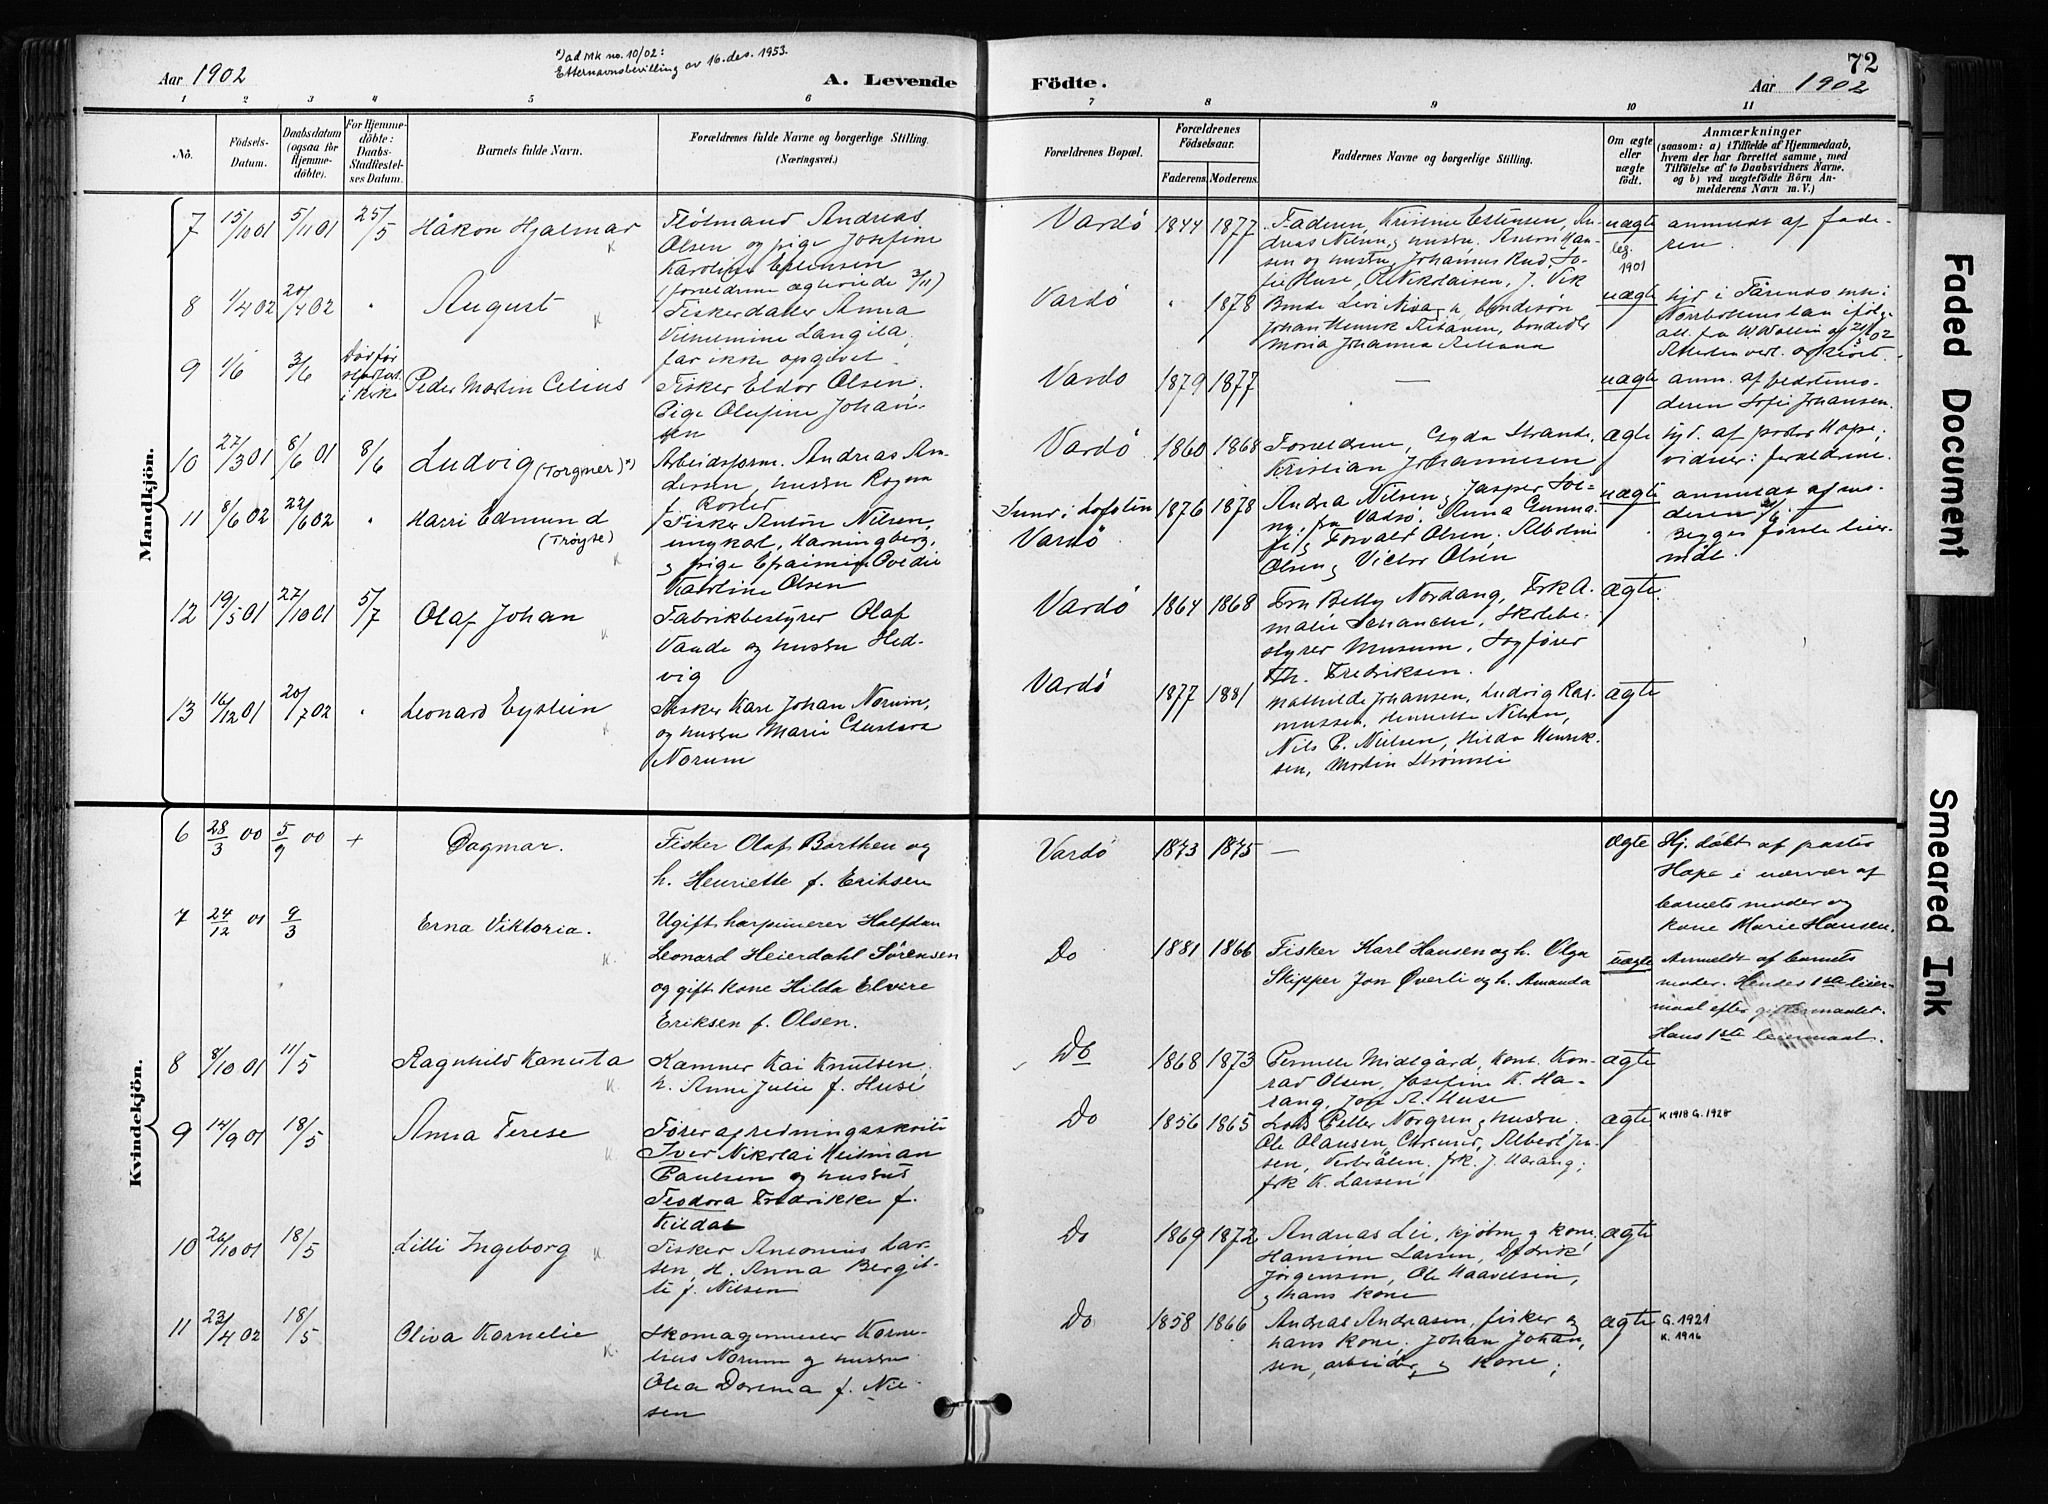 Aar 1902
*) ad Mk no. 10/02:
Etternavnsbevilling av 16. des. 1953.
A. Levende Födte.
72
Aar 1902
1 2 3 4 5 6 7 8 9 10 11
No.
Födsels-Datum.
Daabsdatum (ogsaa for Hjemmedöbte).
For Hjemmedöbte: Daabs-Stadfæstelses Datum.
Barnets fulde Navn.
Forældrenes fulde Navne og borgerlige Stilling. (Næringsvei.)
Forældrenes Bopæl.
Forældrenes Födselsaar.
Faderens. Moderens.
Faddernes Navne og borgerlige Stilling.
Om ægte eller uægte födt.
Anmærkninger
(saasom: a) i Tilfælde af Hjemmedaab,
hvem der har forrettet samme, med
Tilföielse af to Daabsvidners Navne,
og b) ved uægtefödte Börn Anmelderens Navn m. V.)
Mandkjön.
7 15/10 01 5/11 01 25/5 Håkon Hjalmar
Fløtmand Andreas
Olsen og pige Josefine
Karoline Estensen
(forældrene ægteviede 3/11)
Vardö 1844 1877
Faderen, Kristine Estensen, Andreas Nilsen og hustru, Anton Hansen og hustru, Johannes Rud, Sofie Huse, P. Nikolaisen, J. Vik
uægte
leg. 1901
anmeldt af faderen
8 1/4 02 20/4 02 " August
Fiskerdatter Anna
Vilhelmine Langila,
far ikke opgivet
Vardö " 1878
Johan Henrik
uægte
9 1/6 3/6 Peder Martin Celius
Fisker Eldor Olsen.
Pige Olufine Johansen
Vardö 1879 1877 —
uægte
anm. af bedstemoderen Sofie Johansen.
10 27/3 01 8/6 01 8/6 Ludvig (Torgmer) *)
Arbeidsform. Andreas Andersen, hustru Ragna
Vardö 1860 1868
Forældrene, Gyda Strande,
Kristian Johannesen
ægte
hjd. af pastor Hope;
vidner: forældrene.
11 8/6 02 22/6 02 " Harri Edmund
(Trøyte)
Fisker Anton Nilsen,
ungkarl, Havningberg,
og pige Efraimine Ovedie
Karoline Olsen
Sund i Lofoten
Vardö
1876 1878
uægte
anmeldt af moderen
Begges første leiermål.
12 19/5 01 27/10 01 5/7 Olaf Johan
Fabrikbestyrer Olaf
Vaade og hustru Hedvig
Vardö 1864 1868
Fru Betty Nordang, Frk A-
malie Schanche, Skolebe-
styrer Musum, Sagfører
Th. Fredriksen.
ægte.
13 16/12 01 20/7 02 " Leonard Eystein
Fisker Karl Johan Norum,
og hustru Marie Gustava
Norum
Vardö 1877 1881
Mathilde Johansen, Ludvig Ras-
mussen, Henriette Nilsen,
Nils P. Nielsen, Hilda Henrik-
sen, Martin Strømsli
ægte
Kvindekjön.
6 28/3 00 5/9 00 + Dagmar.
Fisker Olaf Barthen og
h. Henriette f. Eriksen
Vardö 1873 1875 —
Ægte
Hj. döbt af pastor
Hope i nærvær af
barnets moder og
kone Marie Hansen.
7 24/12 01 9/3 Erna Viktoria.
Ugift harpunerer Halfdan
Leonard Heierdahl Sörensen
og gift kone Hilda Elvire
Eriksen f. Olsen.
Do 1881 1866
Fisker Karl Hansen og h. Olga
Skipper Jon Øverli og h. Amanda
uægte
Anmeldt af barnets
moder. Hendes 1ste leier-
maal efter giftermaalet.
Hans 1ste leiermaal.
8 8/10 01 11/5 Ragnhild Kanuta
Kamner Kai Knutsen,
h. Anne Julie f. Huse
Do 1868 1873
Pernelle Midtgård, kont. Kon-
rad Olsen, Josefine K. Ha-
rang, Jon A. Huse
ægte
9 14/9 01 18/5 Anna Terese
Fører af redningsskøite
Iver Nikolai Heitman
Paulsen og hustru
Teodora Fredrikke f.
Kildal
Do 1856 1865
Lods Petter Norgren og hustru,
frk. J. Harang;
frk K. Larsen
ægte
K 1918 G. 1928
10 26/10 01 18/5 Lilli Ingeborg
Fisker Antonius Lar-
sen, H. Anna Bergit-
te f. Nilsen
Do 1869 1872
Andreas Lie, kjøbm og kone
Hansine Larsen, Dedrik
Jörgensen, Ole Haavelsen,
og hans kone
ægte
11 23/4 02 18/5 Oliva Kornelie
Skomagermester Korne-
lius Norum og hustru
Olea Dorthea f. Nil-
sen
Do 1858 1866
Andreas Andreasen, fisker og
hans kone, Johan Johan-
sen, arbeider, og kone;
ægte
G. 1921
K. 1916
Faded Document
Smeared Ink